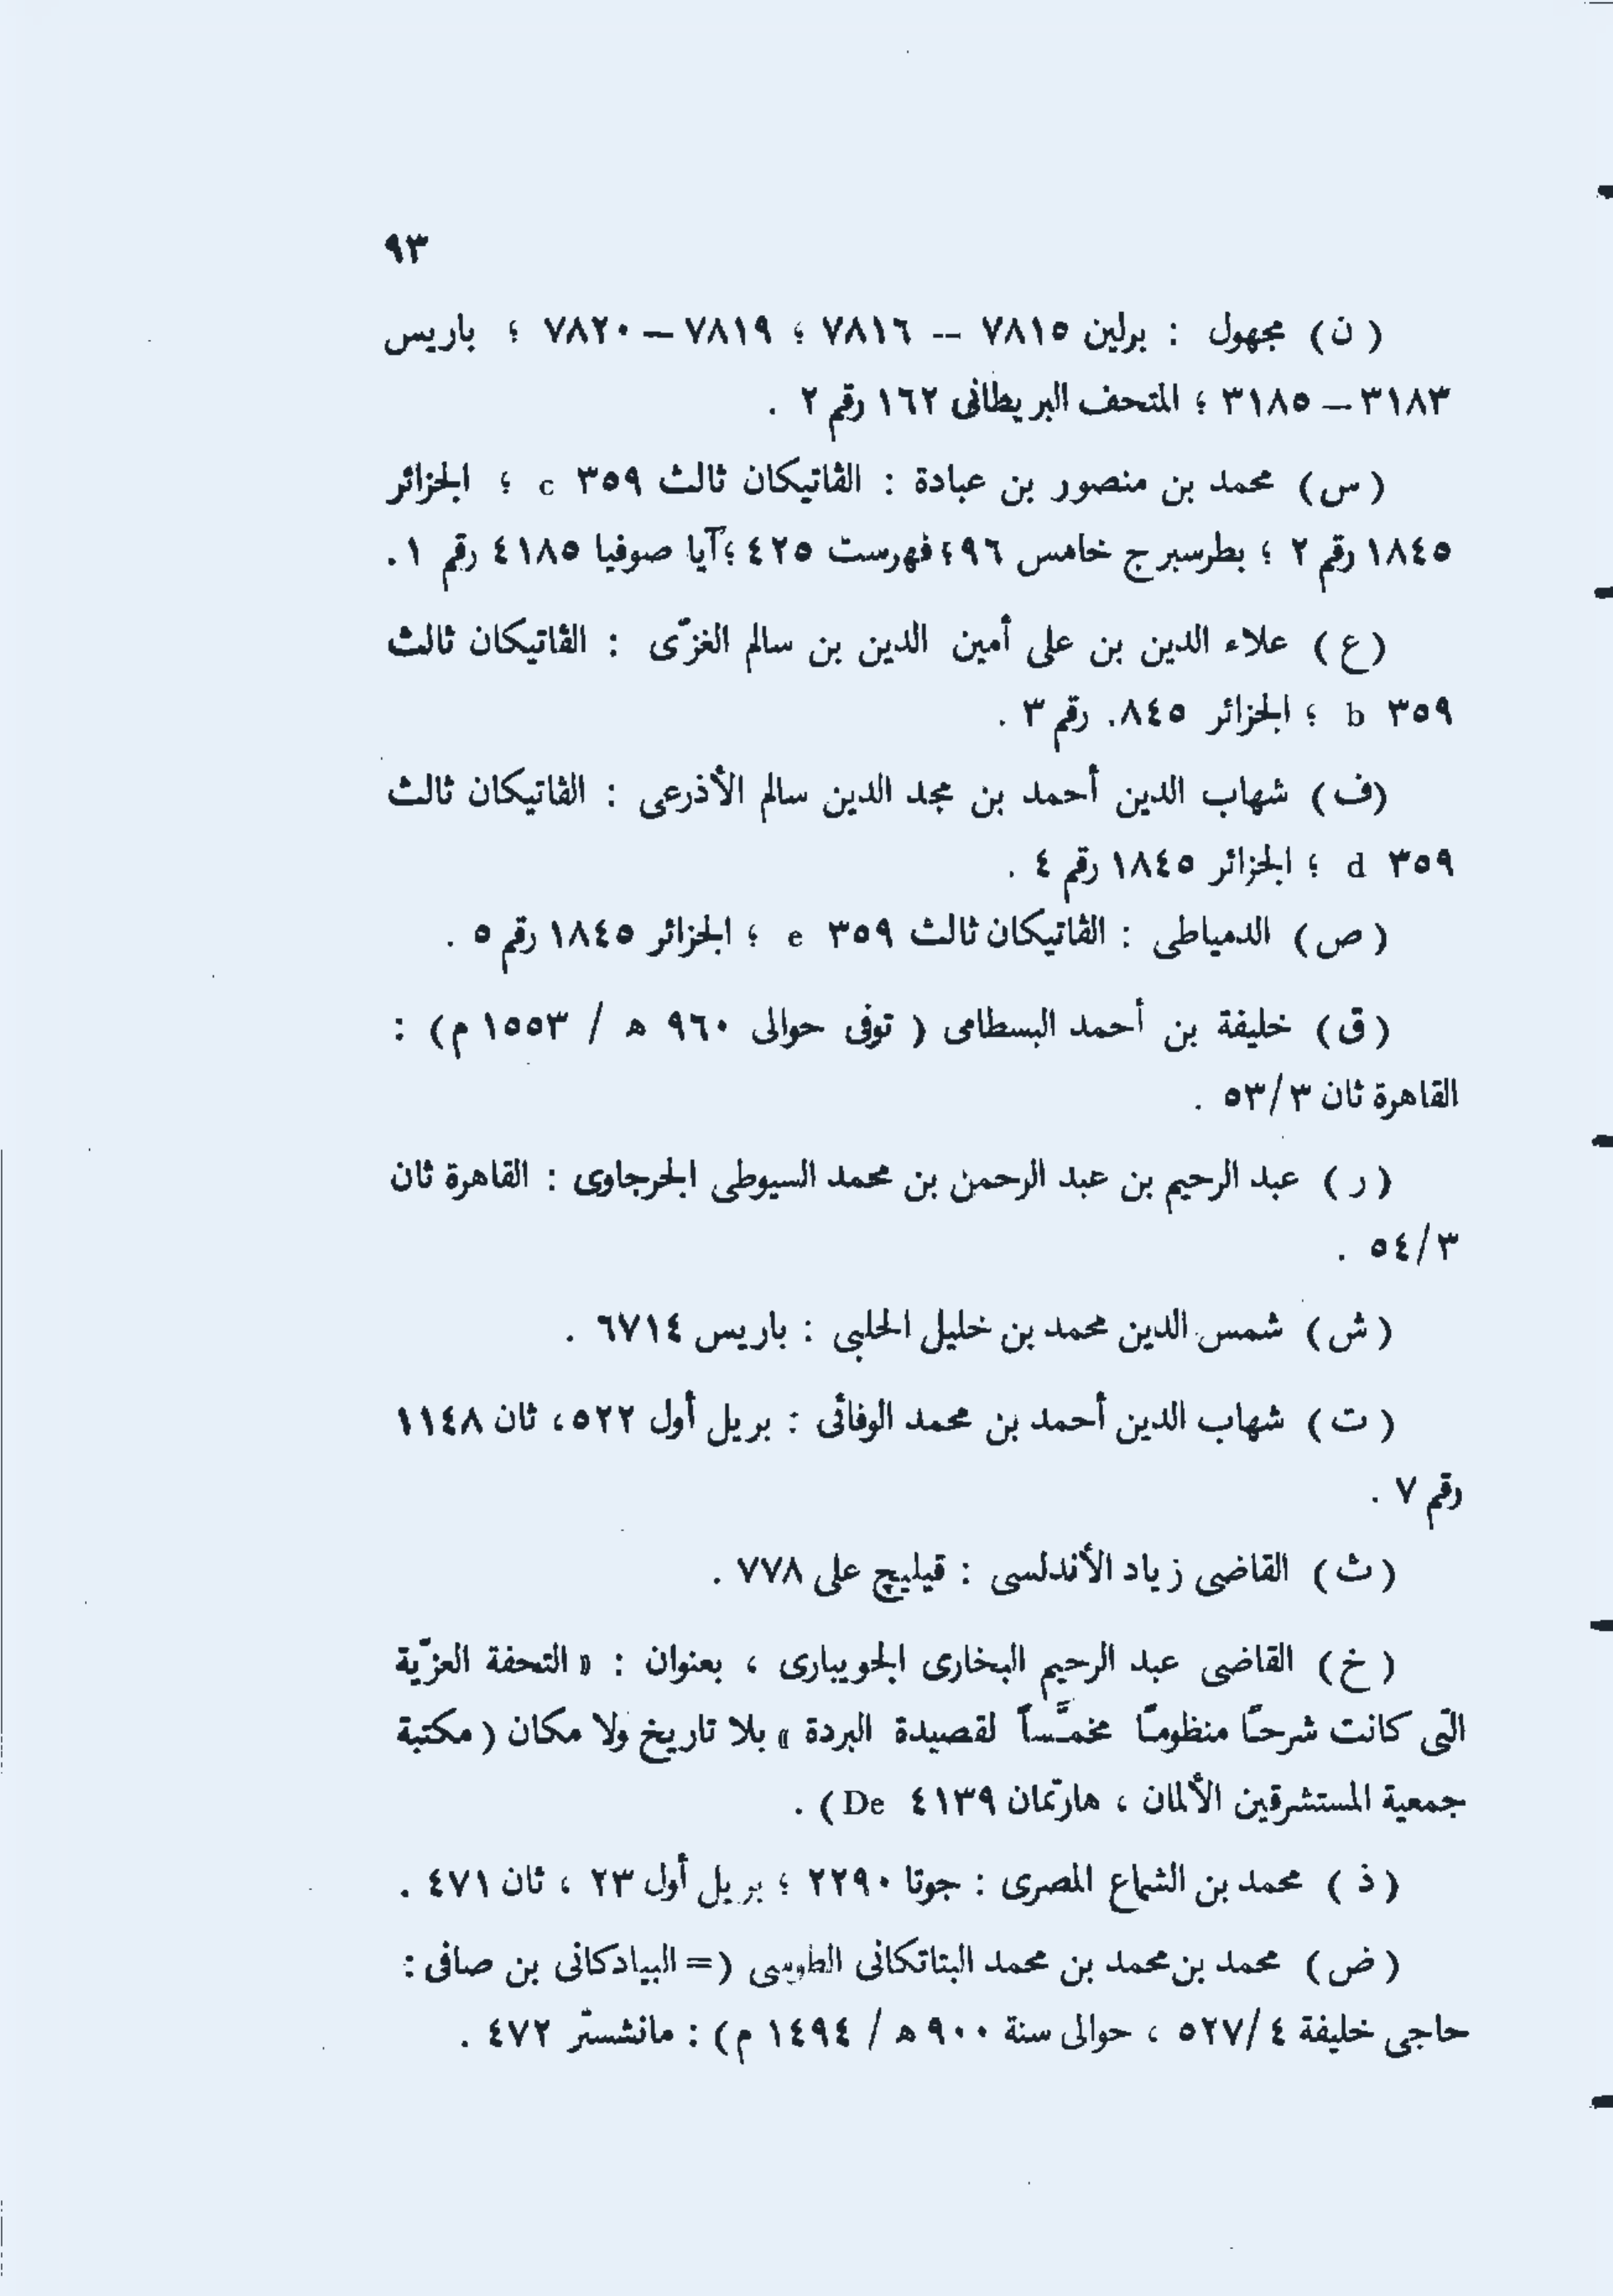 ٩٣
(ن) مجهول : برلين ٧٨١٥ -- ٧٨١٦ ؛ ٧٨١٩ – ٧٨٢٠ ؛ باريس
٣١٨٣ – ٣١٨٥ ؛ المتحف البريطانى ١٦٢ رقم ٢ .
(س) محمد بن منصور بن عبادة : الڤاتيكان ثالث ٣٥٩ c ؛ الجزائر
١٨٤٥ رقم ٢ ؛ بطرسبرج خامس ٩٦؛ فهرست ٤٢٥ ؛ آيا صوفيا ٤١٨٥ رقم ١ .
(ع) علاء الدين بن على أمين الدين بن سالم الغزّى : الڤاتيكان ثالث
٣٥٩ b ؛ الجزائر ٨٤٥. رقم ٣ .
(ف) شهاب الدين أحمد بن مجد الدين سالم الأذرعى : الڤاتيكان ثالث
٣٥٩ d ؛ الجزائر ١٨٤٥ رقم ٤ .
(ص) الدمياطى : الڤاتيكان ثالث ٣٥٩ e ؛ الجزائر ١٨٤٥ رقم ٥ .
(ق) خليفة بن أحمد البسطامى ( توفى حوالى ٩٦٠ ه / ١٥٥٣ م) :
القاهرة ثان ٥٣/٣ .
(ر) عبد الرحيم بن عبد الرحمن بن محمد السيوطى الجرجاوى : القاهرة ثان
٥٤/٣ .
(ش) شمس الدين محمد بن خليل الحلبى : باريس ٦٧١٤ .
(ت) شهاب الدين أحمد بن محمد الوفائى : بريل أول ٥٢٢ ، ثان ١١٤٨
رقم ٧ .
(ث) القاضى زياد الأندلسى : قيليچ على ٧٧٨ .
(خ) القاضى عبد الرحيم البخارى الجويبارى ، بعنوان : « التحفة العزّية
التى كانت شرحًا منظومًا مخمَّسًا لقصيدة البردة » بلا تاريخ ولا مكان ( مكتبة
جمعية المستشرقين الألمان ، هارتمان ٤١٣٩ De) .
(ذ) محمد بن الشماع المصرى : جوتا ٢٢٩٠ ؛ بريل أول ٢٣ ، ثان ٤٧١ .
(ض) محمد بن محمد بن محمد البتاتكانى الطوسى (= البيادكانى بن صافى :
حاجى خليفة ٥٢٧/٤ ، حوالى سنة ٩٠٠ ه / ١٤٩٤ م) : مانشستر ٤٧٢ .